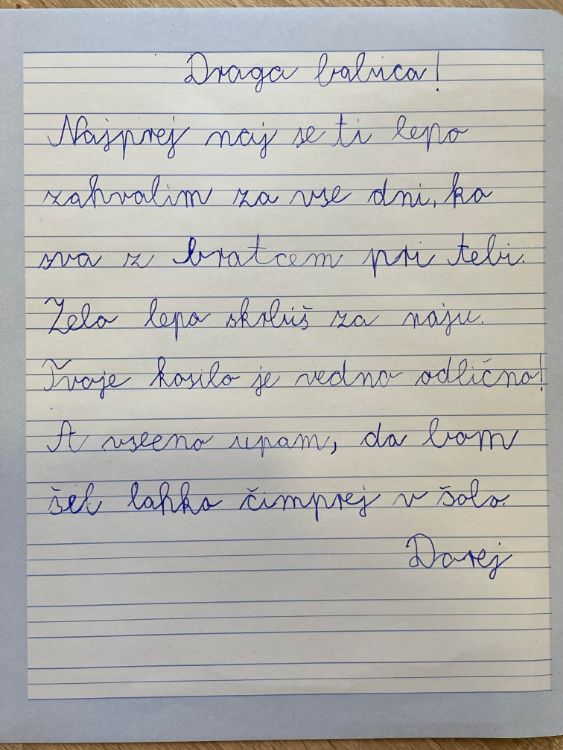 Draga babica!
Najprej naj se ti lepo
zahvalim za vse dni, ko
sva z bratcem pri tebi.
Zelo lepo skrbiš za naju.
Tvoje kosilo je vedno odlično!
A vseeno upam, da bom
šel lahko čimprej v šolo.
Dorej